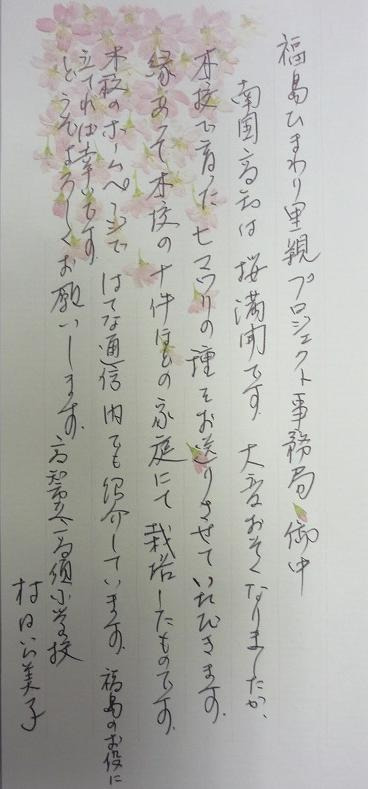 福島ひまわり里親プロジェクト事務局 御中
南国高知は桜満開です 大変おそくなりましたが、
本校で育ったヒマワリの種をお送りさせていただきます。
縁あって本校の十件ほどの家庭にて栽培したものです。
本校のホームページではてな通信内でも紹介しています。福島のお役に
立てれば幸いです。
どうぞよろしくお願いします。高知 小学校
村 美子